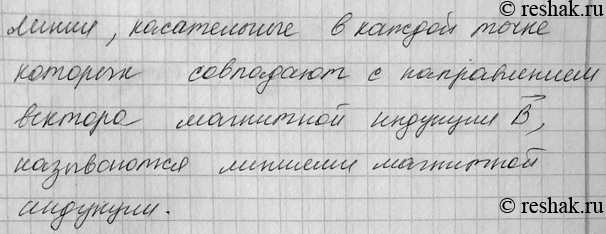 reshak.ru
линии, касательные в каждой точке
которых совпадают с направлением
вектора магнитной индукции B,
называются линиями магнитной
индукции.
reshak.ru